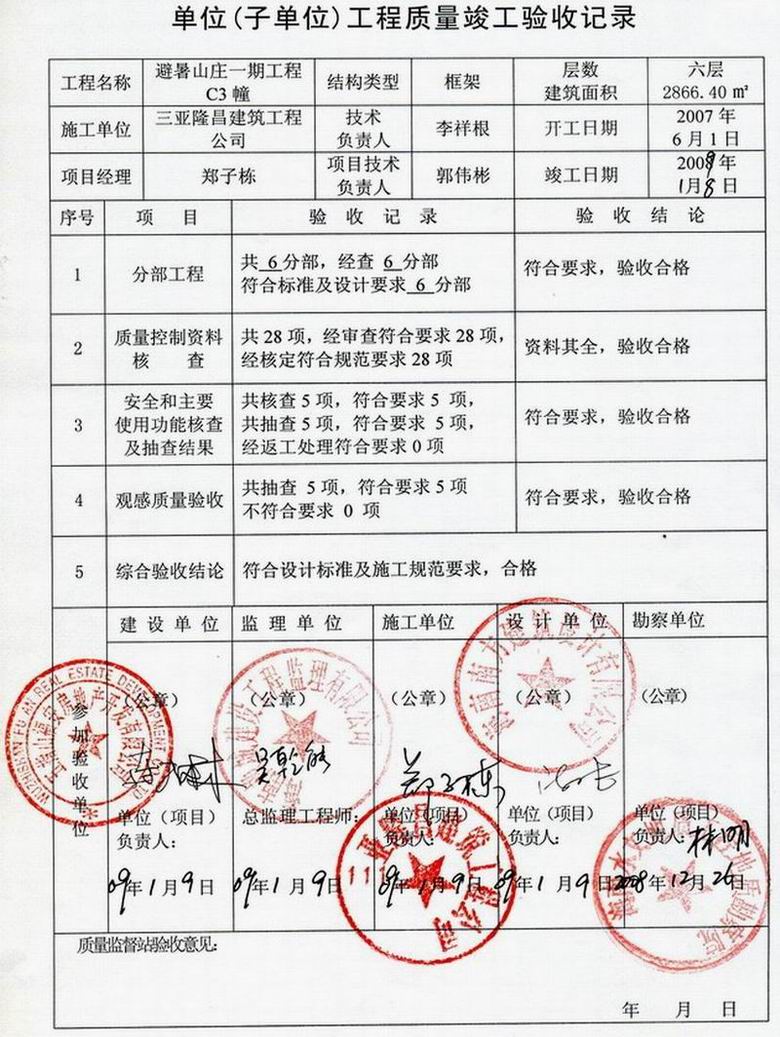 单位(子单位)工程质量竣工验收记录
工程名称
避暑山庄一期工程
C3幢
结构类型
框架
层数
建筑面积
六层
2866.40㎡
施工单位
三亚隆昌建筑工程
公司
技术
负责人
李祥根
开工日期
2007年
6月1日
项目经理
郑子栋
项目技术
负责人
郭伟彬
竣工日期
2009年
1月8日
序号
项 目
验 收 记 录
验 收 结 论
1
分部工程
共 6 分部，经查 6 分部
符合标准及设计要求 6 分部
符合要求，验收合格
2
质量控制资料
核 查
共28项，经审查符合要求28项，
经核定符合规范要求28项
资料其全，验收合格
3
安全和主要
使用功能核查
及抽查结果
共核查5项，符合要求5 项，
共抽查5项，符合要求 5项，
经返工处理符合要求0项
符合要求，验收合格
4
观感质量验收
共抽查 5项，符合要求5项
不符合要求 0 项
符合要求，验收合格
5
综合验收结论
符合设计标准及施工规范要求，合格
参加验收单位
建 设 单 位
监 理 单 位
施工单位
设 计 单 位
勘察单位
(公章)
(公章)
(公章)
(公章)
(公章)
吴乾能
郑子栋
单位(项目)
负责人:
总监理工程师:
单位(项目)
负责人:
单位(项目)
负责人:
单位(项目)
负责人:
林明
09年1月9日
09年1月9日
09年1月9日
09年1月9日
2008年12月26日
WUZHISHAN FU AN REAL ESTATE DEVELOPMENT
工程监理有限公司
三亚隆昌建筑工程公司
质量监督站验收意见:
年 月 日